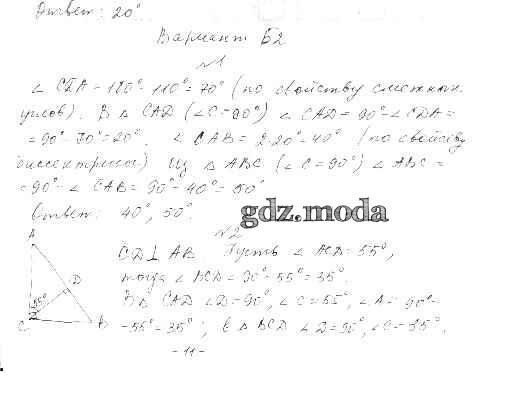 Ответ: 20°
Вариант Б2
№1
∠ CDA = 180° - 110° = 70° (по свойству смежных
углов). В Δ CAD (∠C = 90°) ∠ CAD = 90° - ∠CDA =
= 90° - 70° = 20°. ∠ CAB = 2·20° = 40° (по свойству
биссектрисы) Из Δ ABC (∠C = 90°) ∠ ABC =
= 90° - ∠ CAB = 90° - 40° = 50°
Ответ: 40°, 50°.
gdz.moda
№2
CD ⊥ AB. Пусть ∠ ACD = 55°,
тогда ∠ BCD = 90° - 55° = 35°.
В Δ CAD ∠D = 90°, ∠C = 55°, ∠A = 90° -
- 55° = 35°; В Δ BCD ∠D = 90°, ∠C = 35°,
A
D
55°
C
B
- 11 -